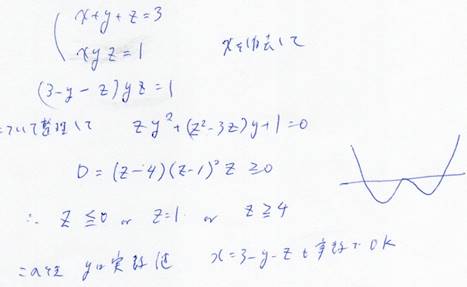 x+y+z=3
xyz=1 xを消去して
(3-y-z)yz=1
ついて整理して zy²+(z²-3z)y+1=0
D=(z-4)(z-1)²z≧0
∴ z≦0 or z=1 or z≧4
このとき yは実数 x=3-y-zも実数でOK